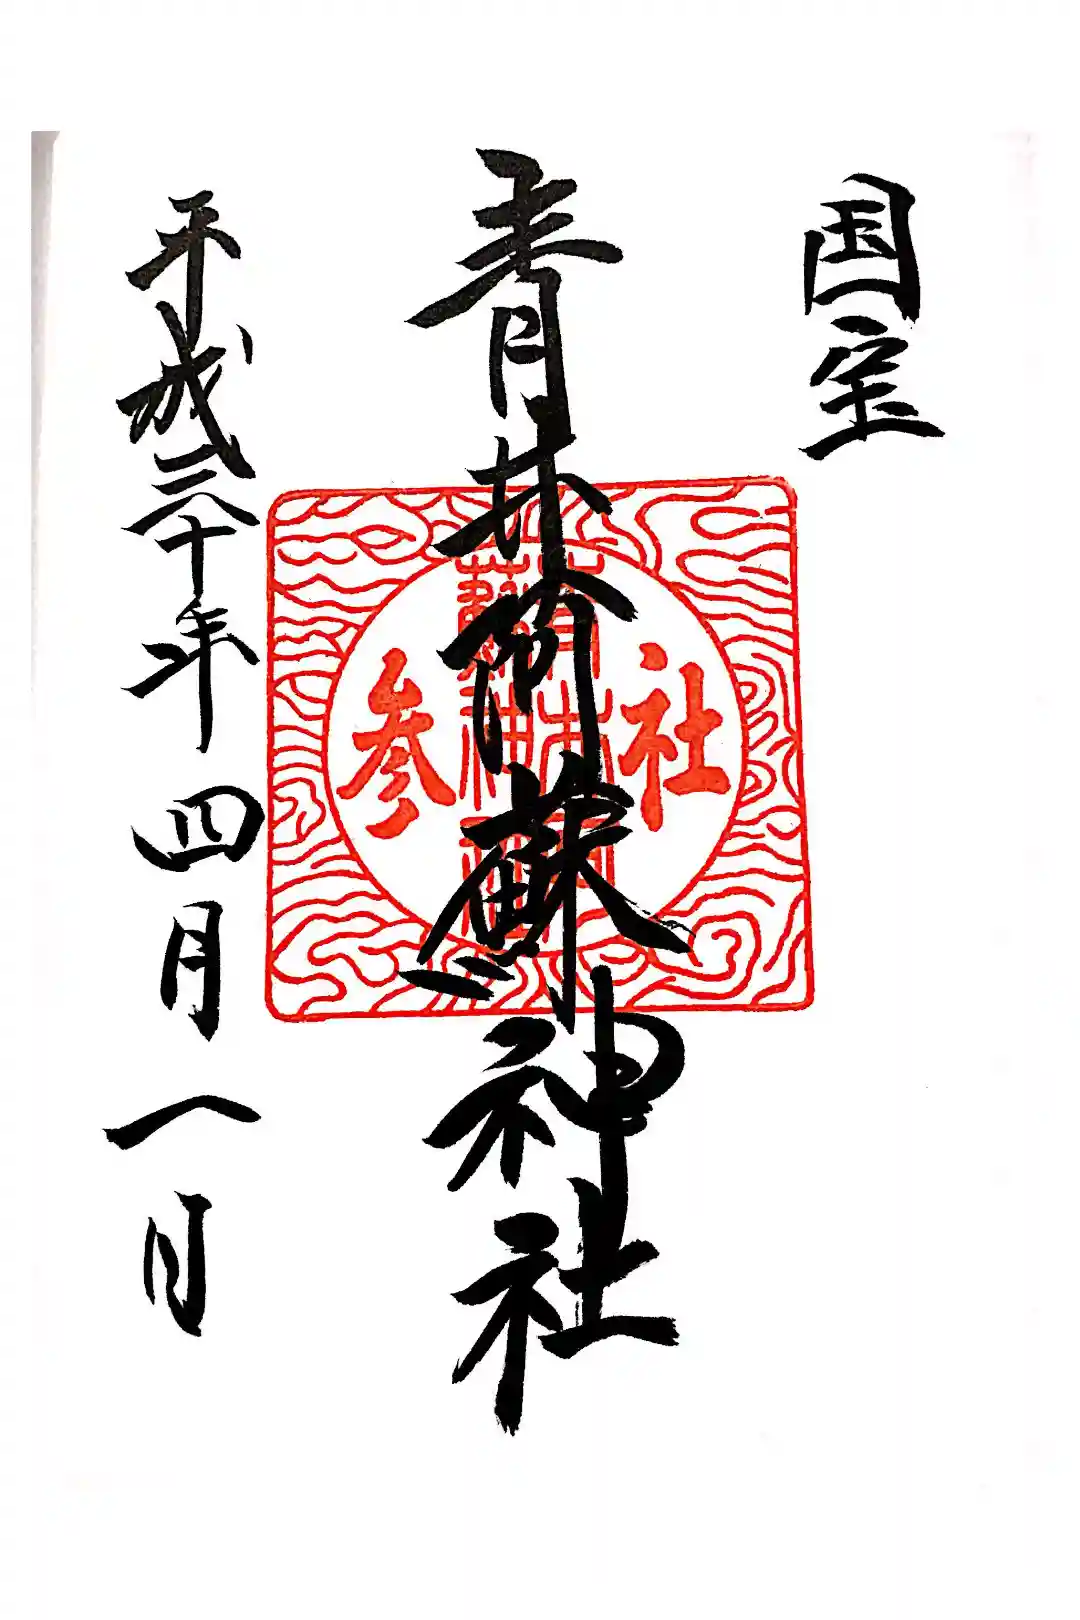 国宝
青井阿蘇神社
平成三十年四月一日
社参
青井阿
蘇神社